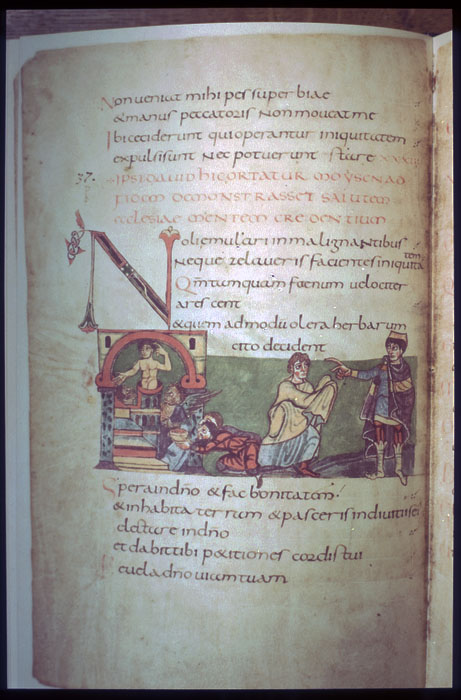 Non veniat mihi pes superbiae
& manus peccatoris non moveat me
Ibi ceciderunt qui operantur iniquitatem
expulsi sunt nec potuerunt stare
37.
salutem
ecclesiae mentem credentium
Noli emulari in malignantibus
Neque zelaveris facientes iniquitatem
Qm tamquam foenum velociter
arescent
& quem admodu olera herbarum
cito decident
Spera in dno & fac bonitatem
& inhabita terram & pasceris in divitiis ei
delectare in dno
et dabit tibi petitiones cordis tui
dno viam tuam